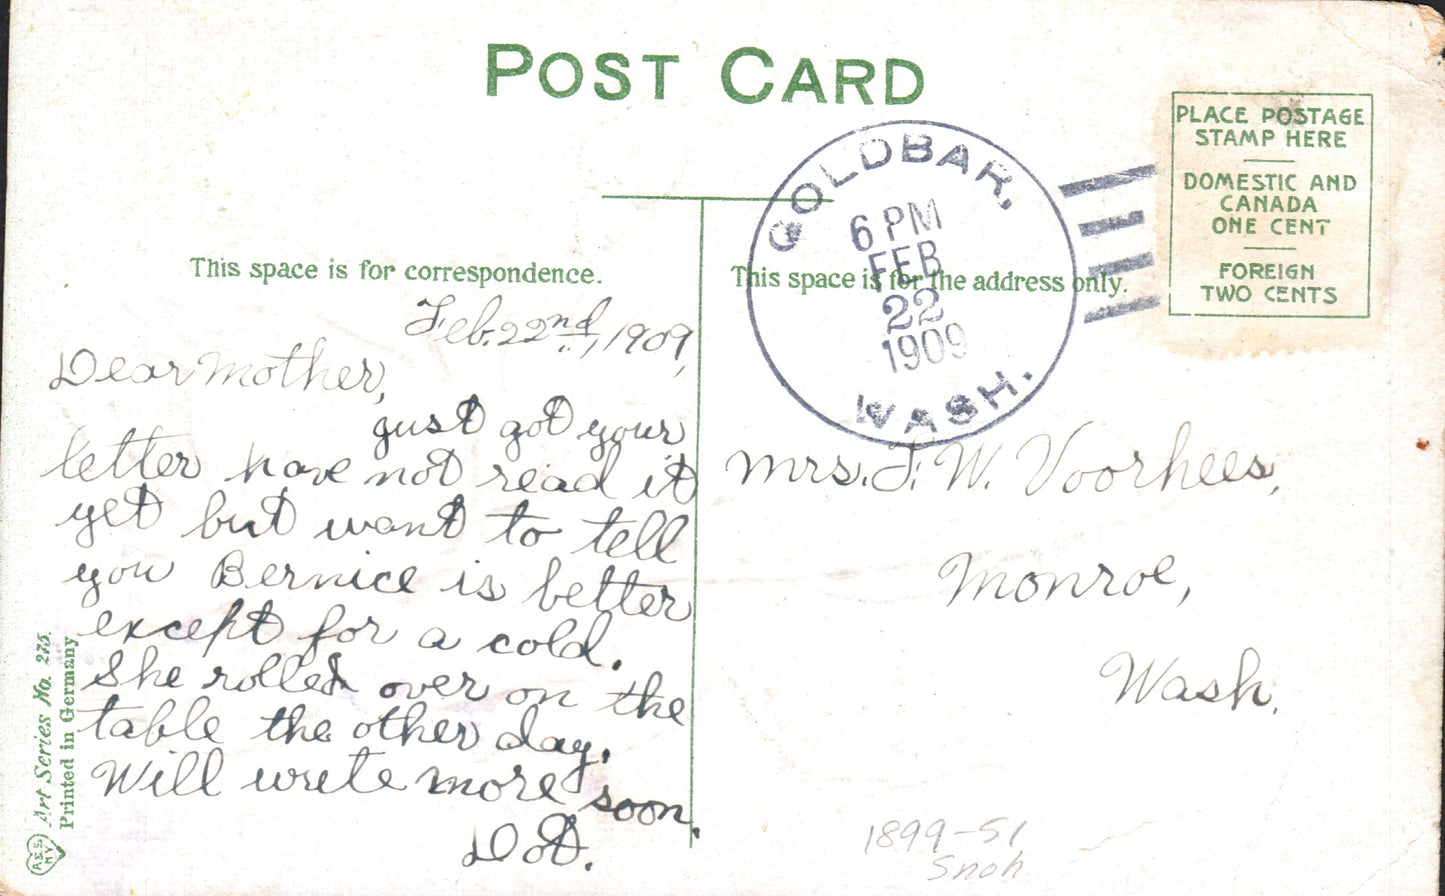 POST CARD
PLACE POSTAGE
STAMP HERE
DOMESTIC AND
CANADA
ONE CENT
FOREIGN
TWO CENTS
GOLDBAR,
6 PM
FEB
22
1909
WASH.
This space is for correspondence.
This space is for the address only.
Feb. 22nd, 1909,
Dear Mother,
just got your
letter have not read it
yet but want to tell
you Bernice is better
except for a cold.
She rolled over on the
table the other day.
Will write more soon.
Dot.
Mrs. F. W. Voorhees,
Monroe,
Wash.
1899-51
Snoh
Art Series No. 275.
Printed in Germany
A & S
NY